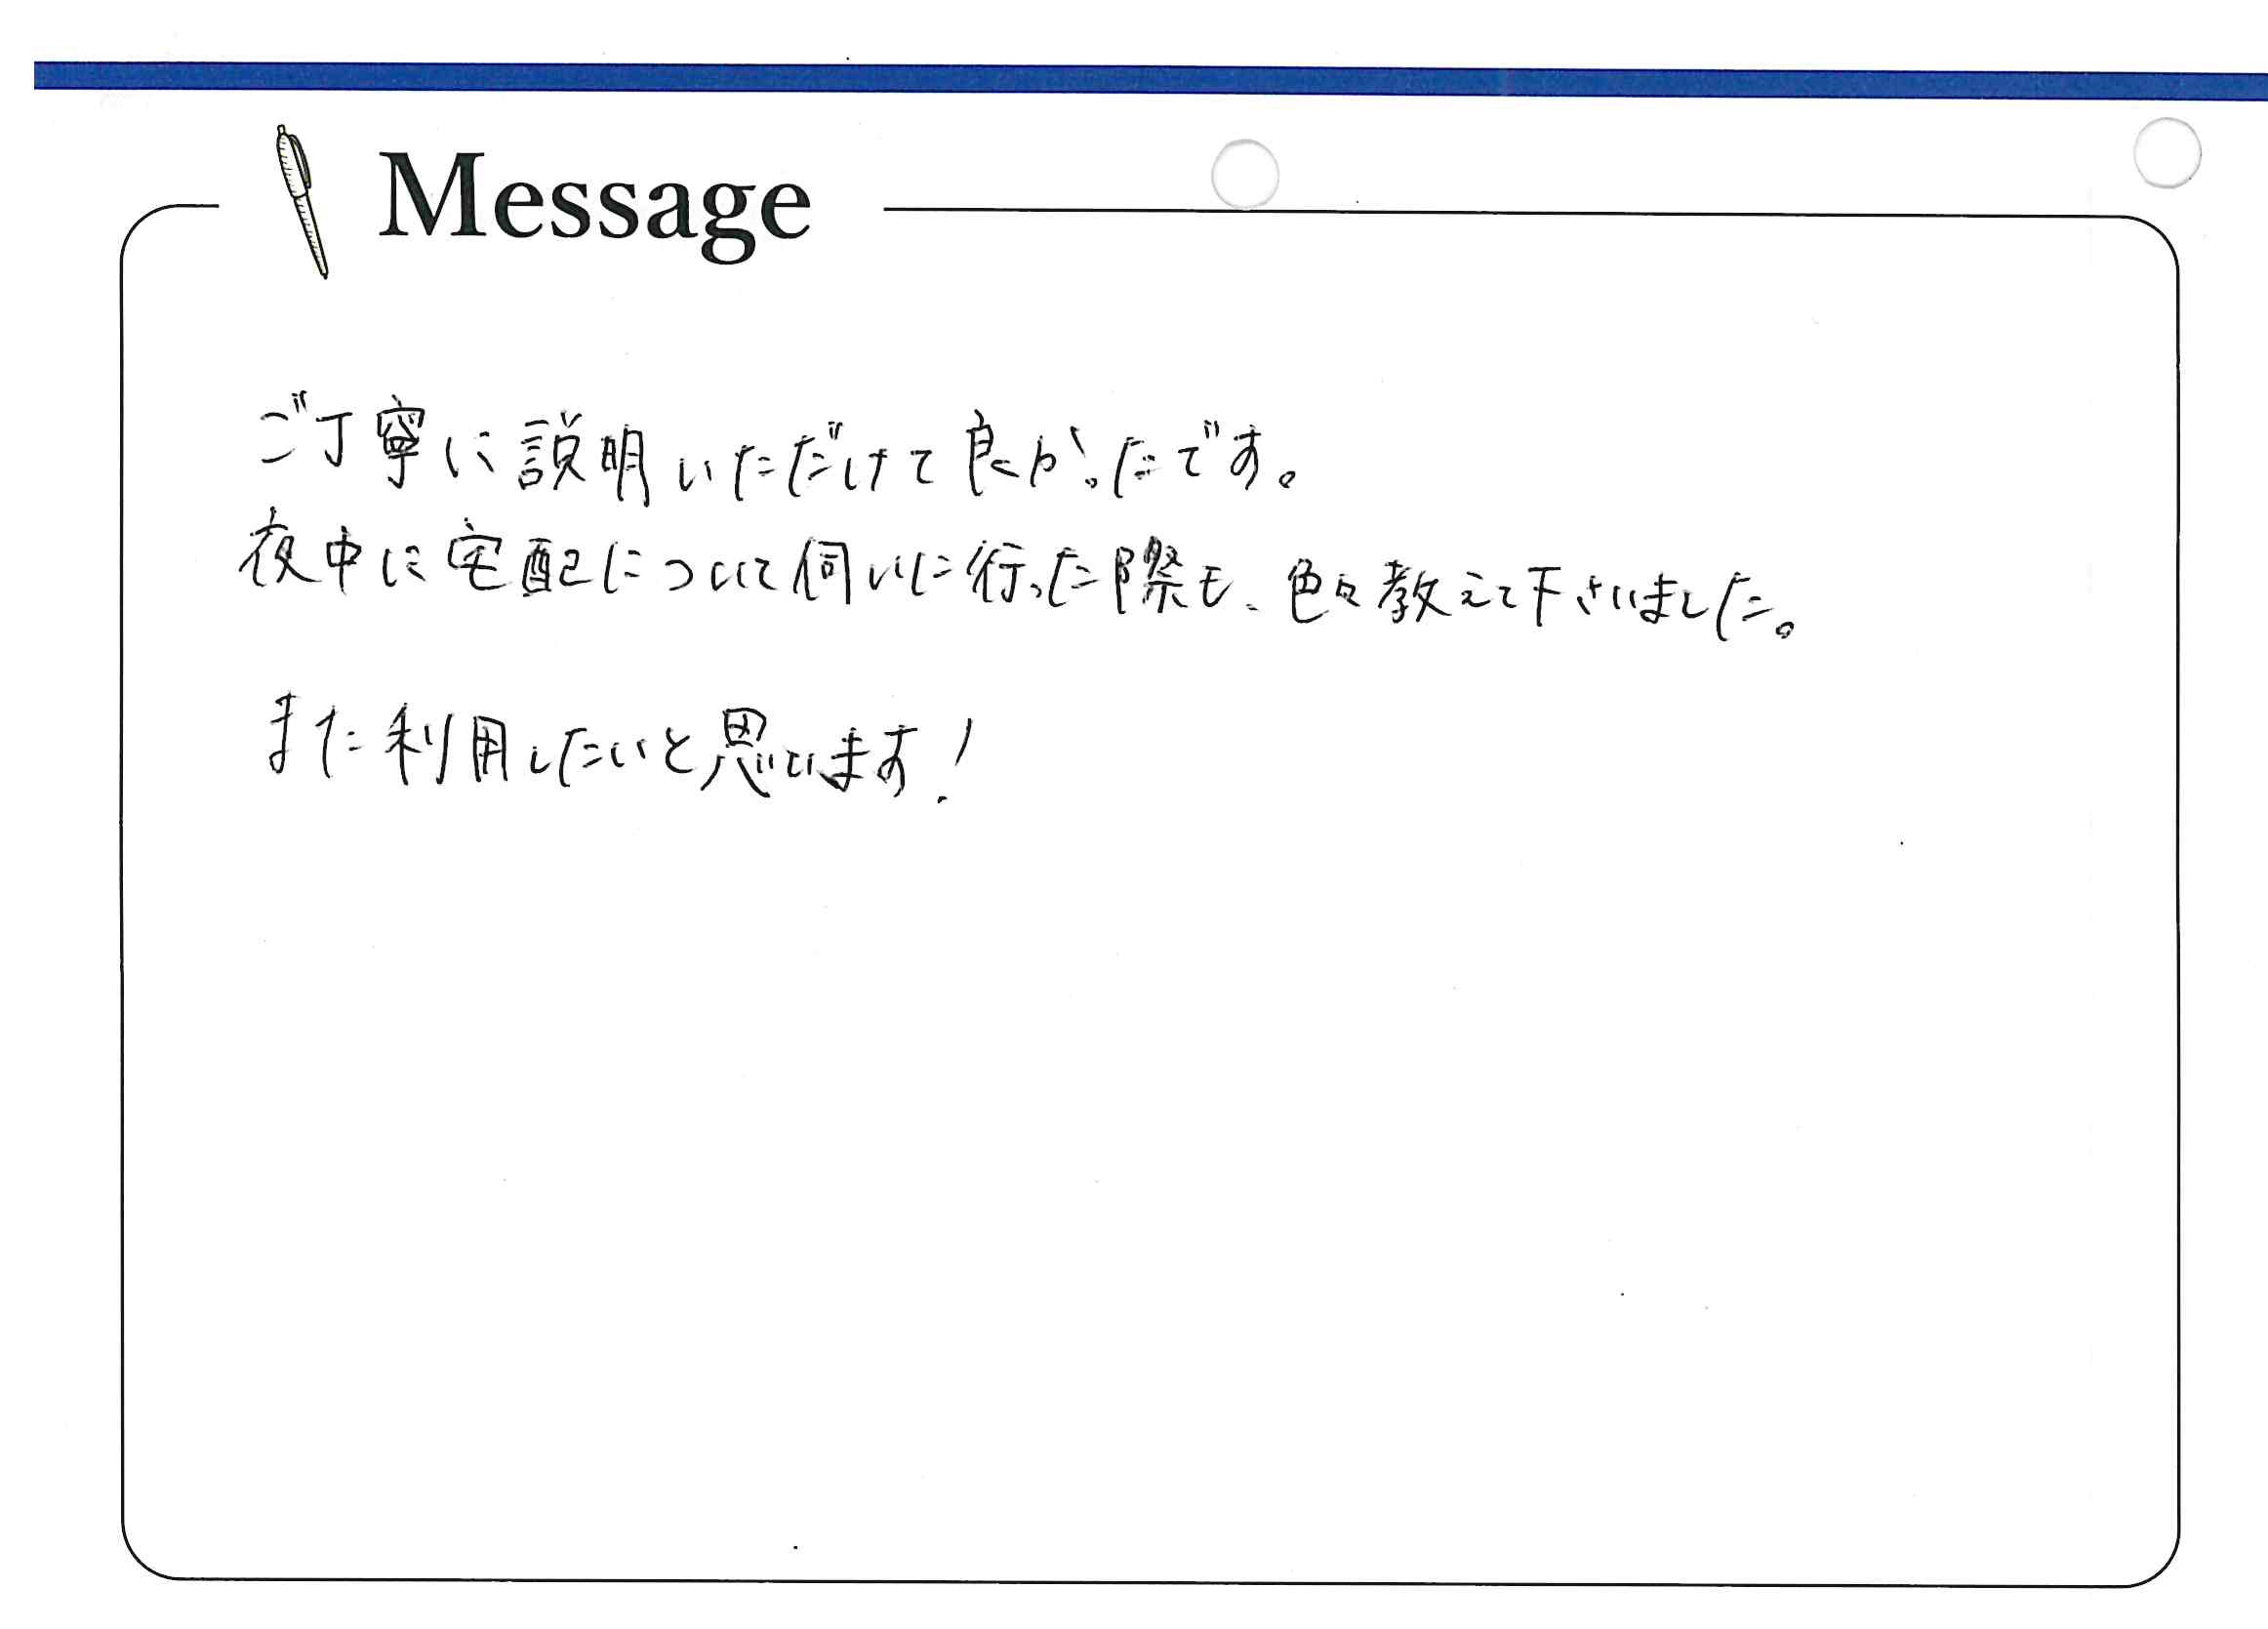 Message
ご丁寧に説明いただけて良かったです。
夜中に宅配について伺いに行った際も、色々教えて下さいました。
また利用したいと思います!